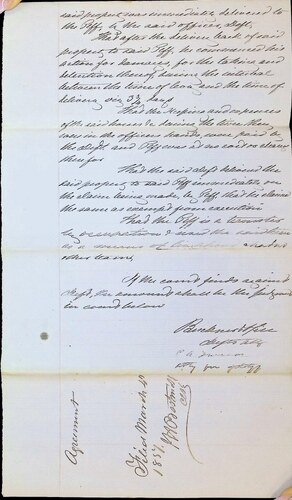 said property was immediately delivered to
the Plff, by the said officer, Deft.
That after the delivery back of said
property to said Plff, he commenced his
action for damages, for the taking and
detention thereof during the interval
between the time of levy and the time of
delivery, viz 3½ days
That the keeping and expenses
of the said horses during the time they
were in the officers hands, were paid by
the deft. and Plff was at no cost or charge
therefor
That the said deft delivered the
said property to said Plff immediately on
the claim being made, by Plff that he claimed
the same as exempt from execution
That the Plff is a teamster
by occupation & used the said
as a means of
other team,
If the court finds against
Deft, the amount shall be the judgment
in court below
Deft's atty
Atty for Plff
Agreement
Filed March 4th
1857
Clerk